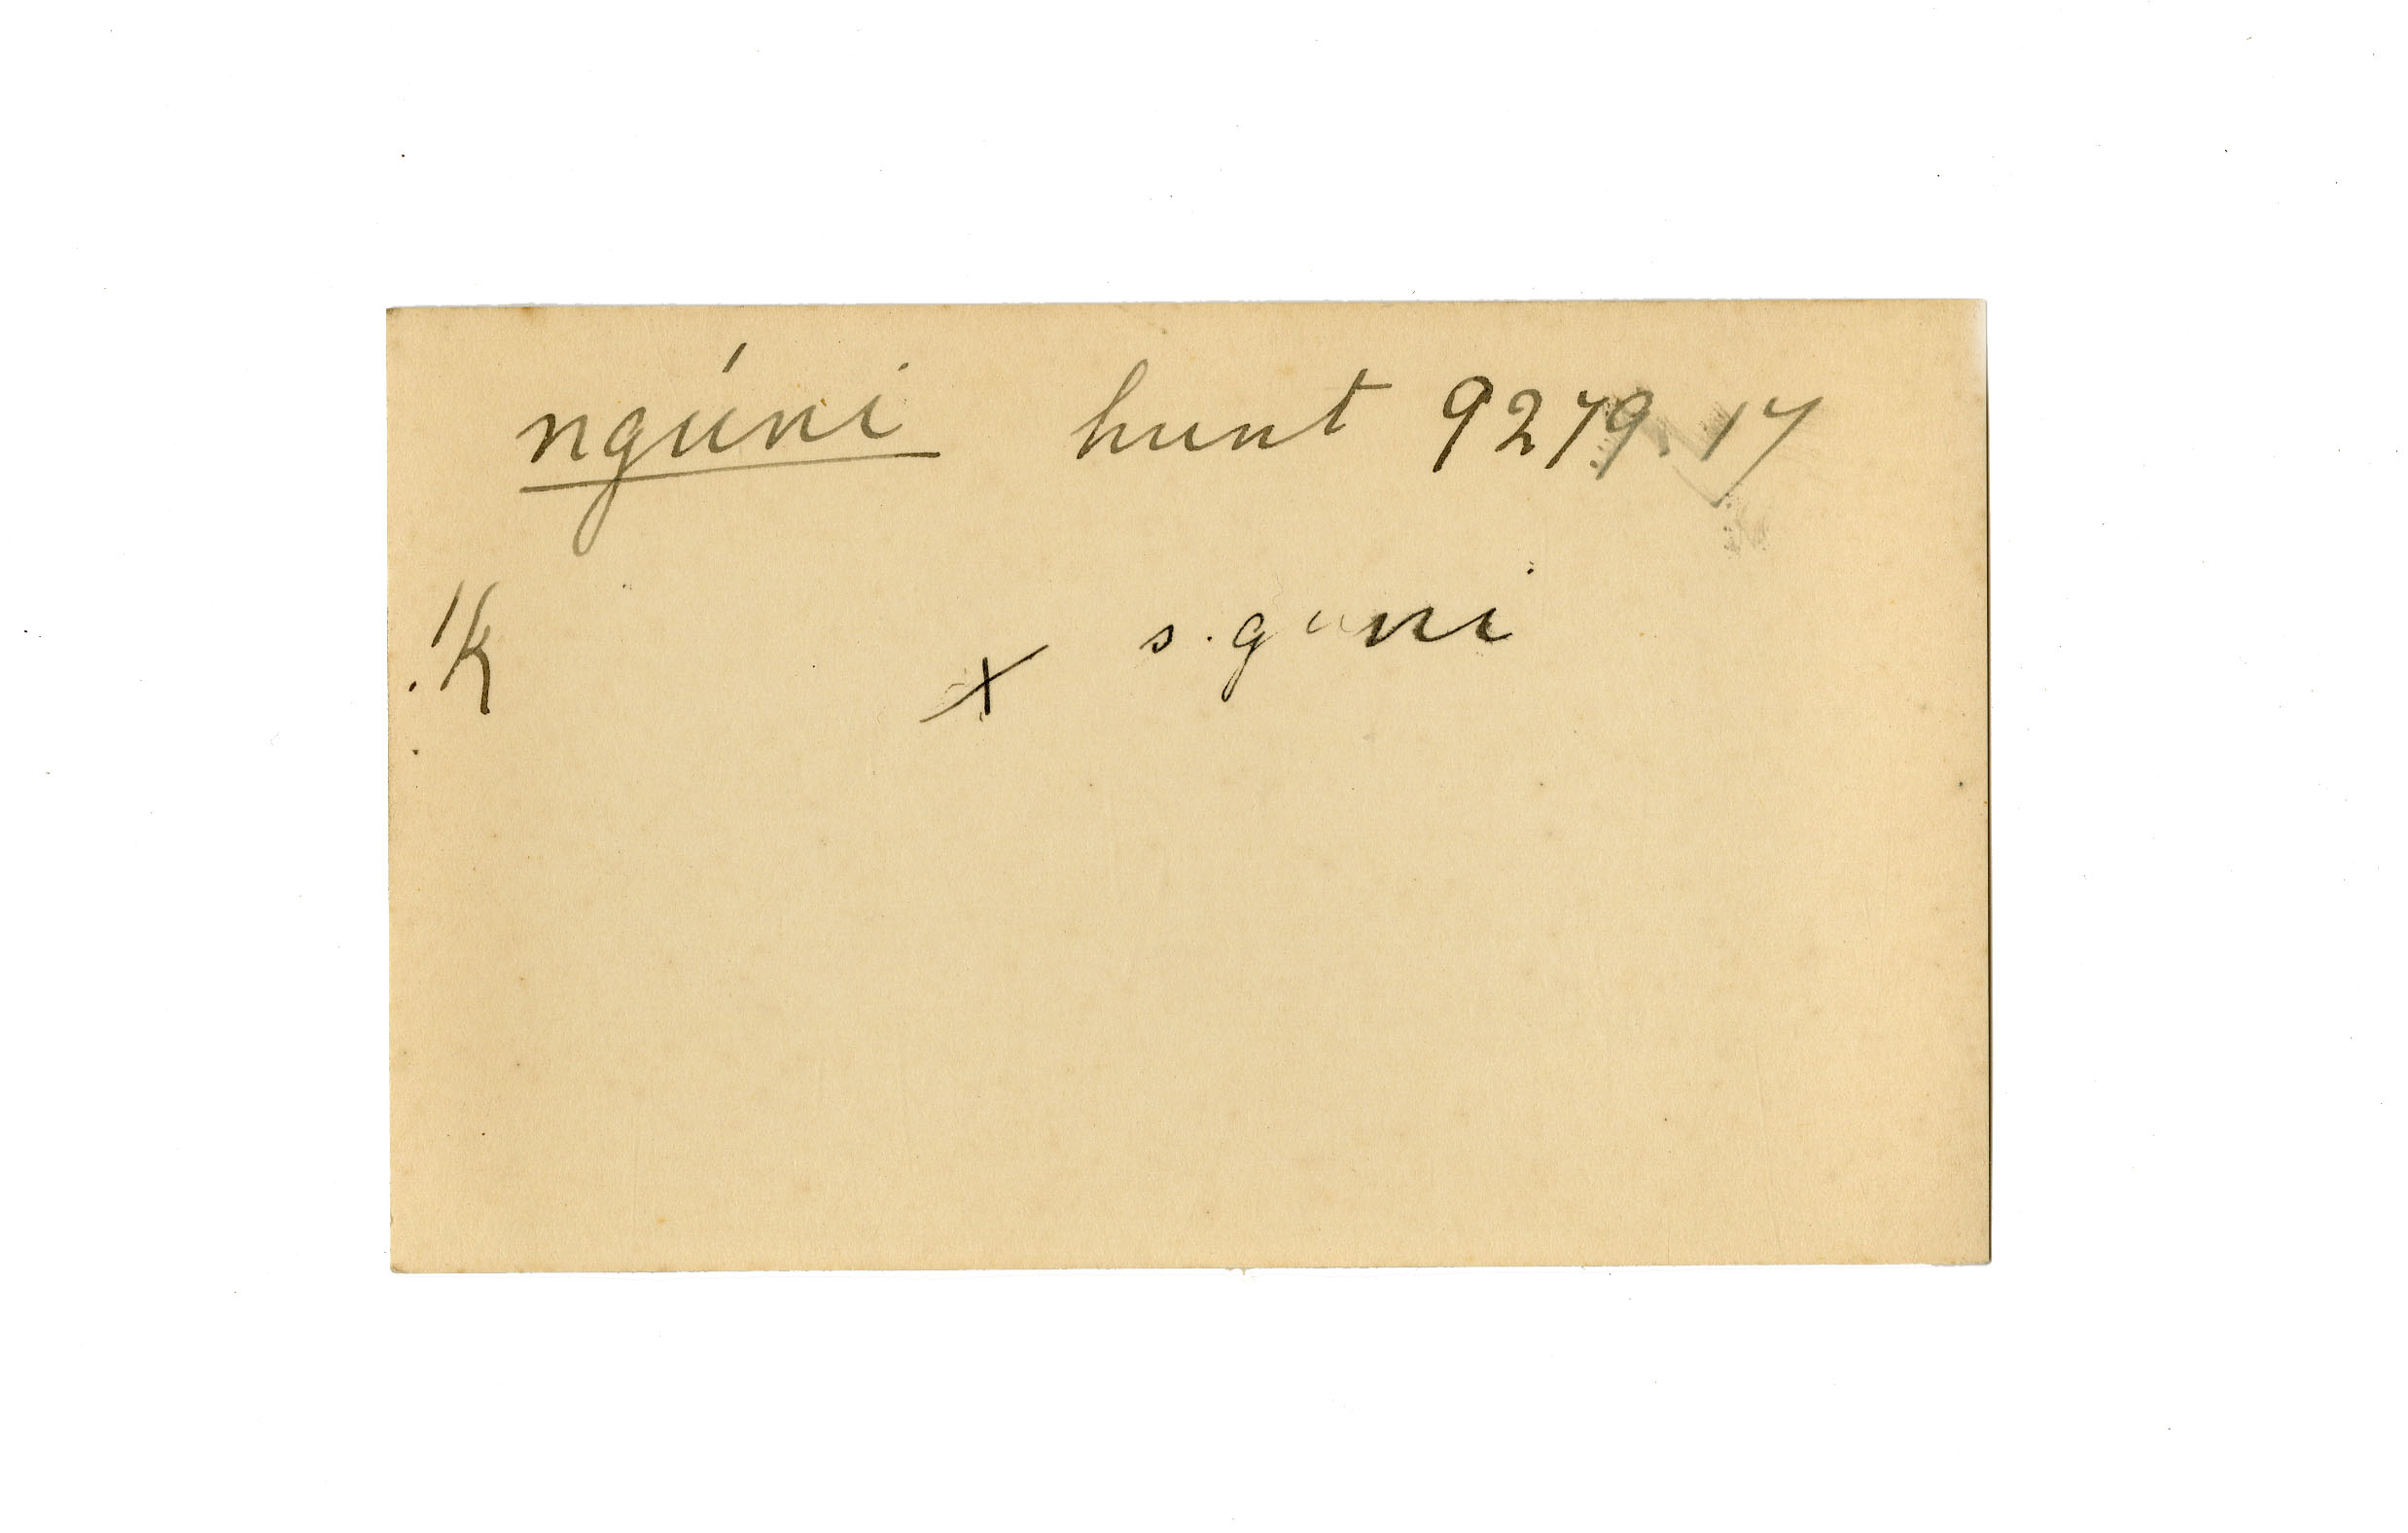 ngúni hunt 9279.17
K x s. guni